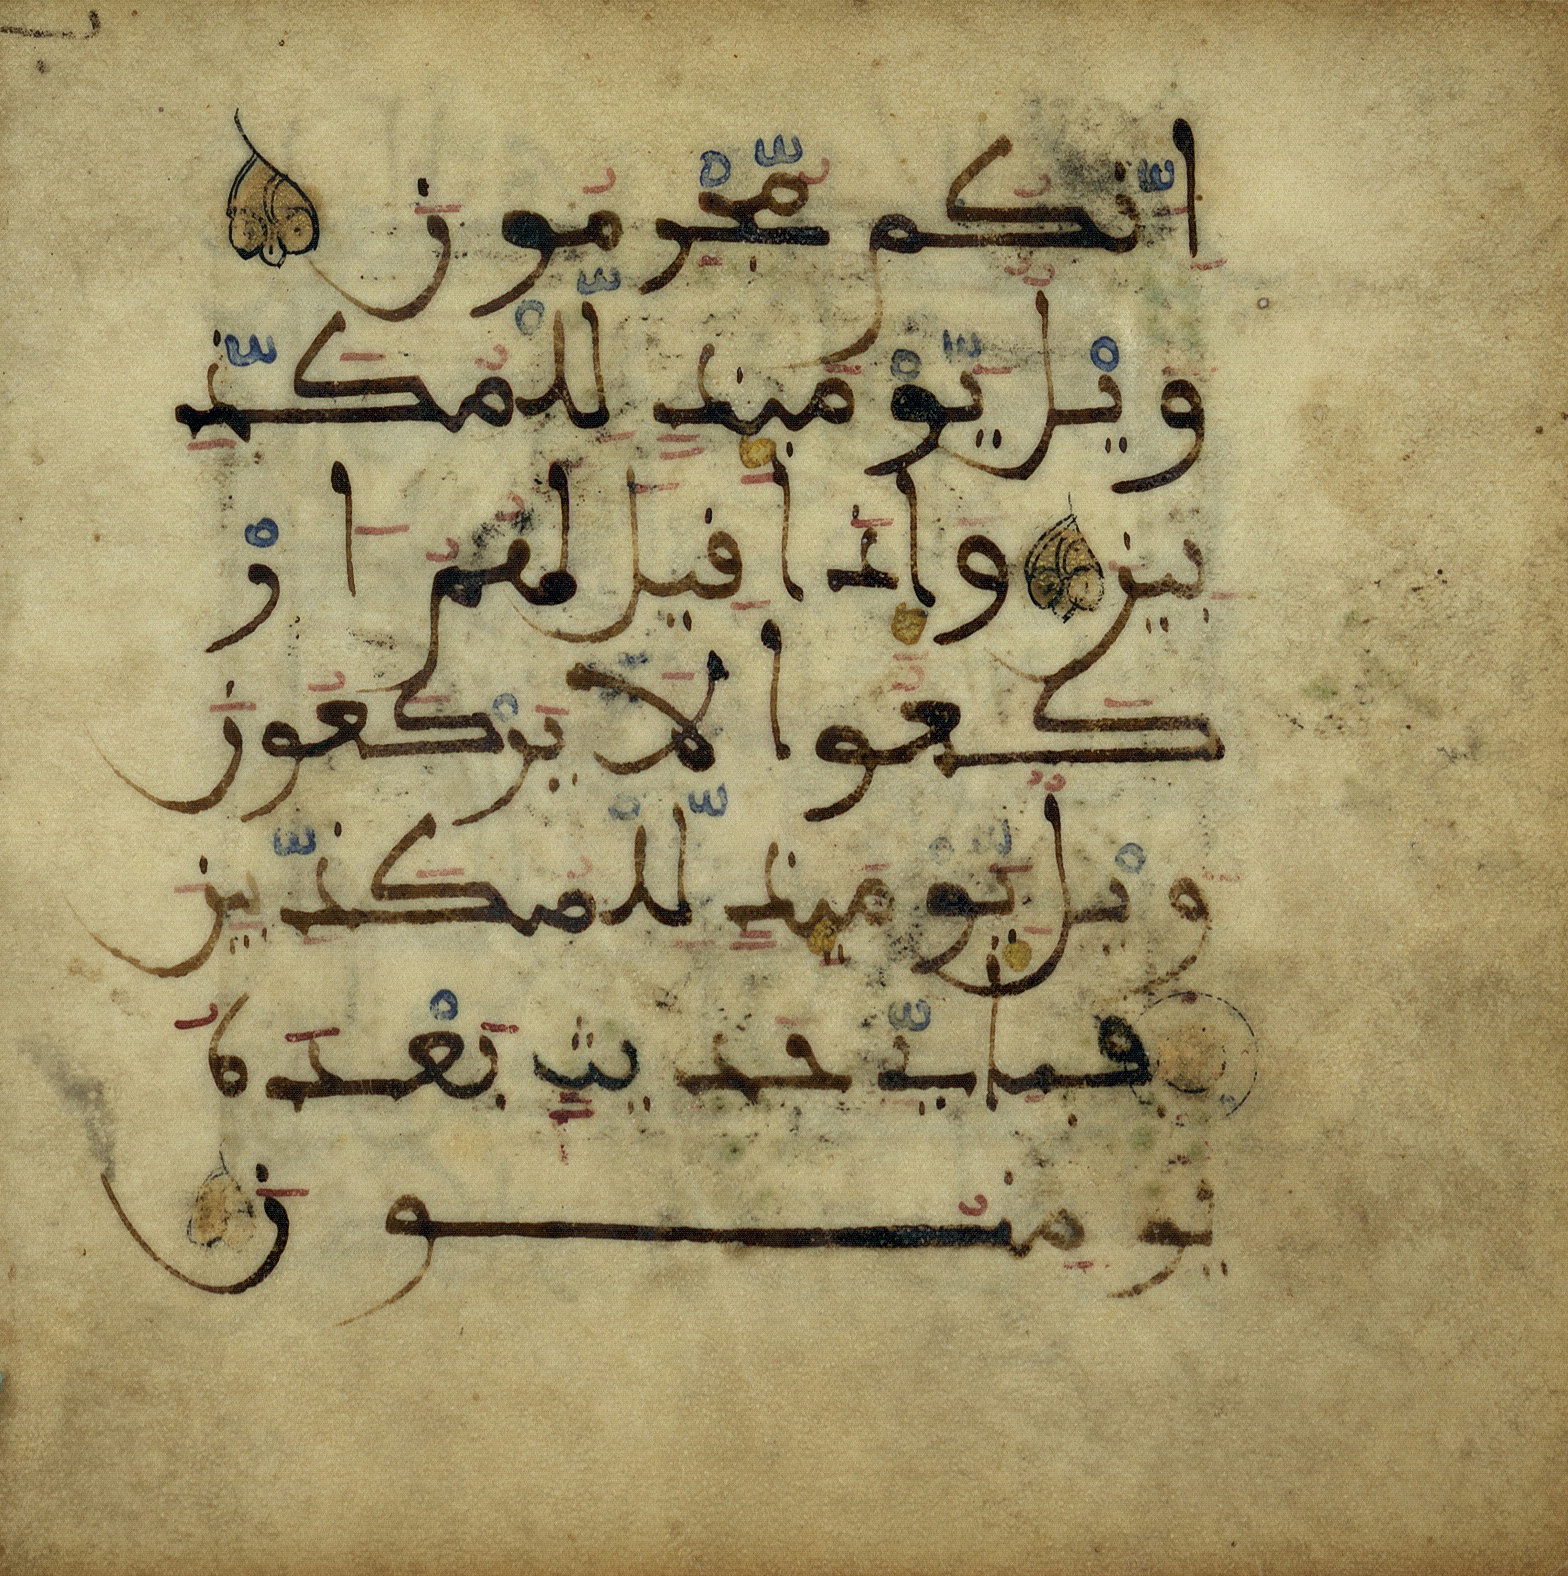 انكم مجرمون
ويل يومئذ للمكذ
بين واذا قيل لهم ار
كعوا لا يركعون
ويل يومئذ للمكذبين
فباي حديث بعده
يومنون